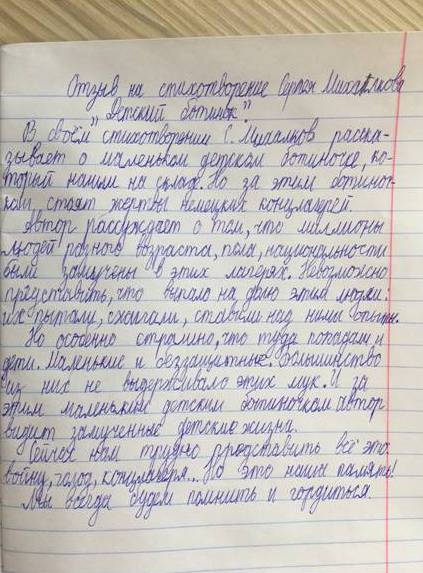 Отзыв на стихотворение Сергея Михалкова
"Детский ботинок".
В своём стихотворении С. Михалков расска-
зывает о маленьком детском ботиночке, ко-
торый нашли на складе. Но за этим ботиноч-
ком, стоят жертвы немецких концлагерей
Автор рассуждает о том, что миллионы
людей разного возраста, пола, национальности
были замучены в этих лагерях. Невозможно
представить, что выпало на долю этим людям.
их пытали, сжигали, ставили над ними опыты.
Но особенно страшно, что туда попадали и
дети. Маленькие и беззащитные. Большинство
из них не выдерживало этих мук. И за
этим маленьким детским ботиночком автор
видит замученные детские жизни.
Сейчас нам трудно представить всё это
войну, голод, концлагеря... Но это наша память!
Мы всегда будем помнить и гордиться.